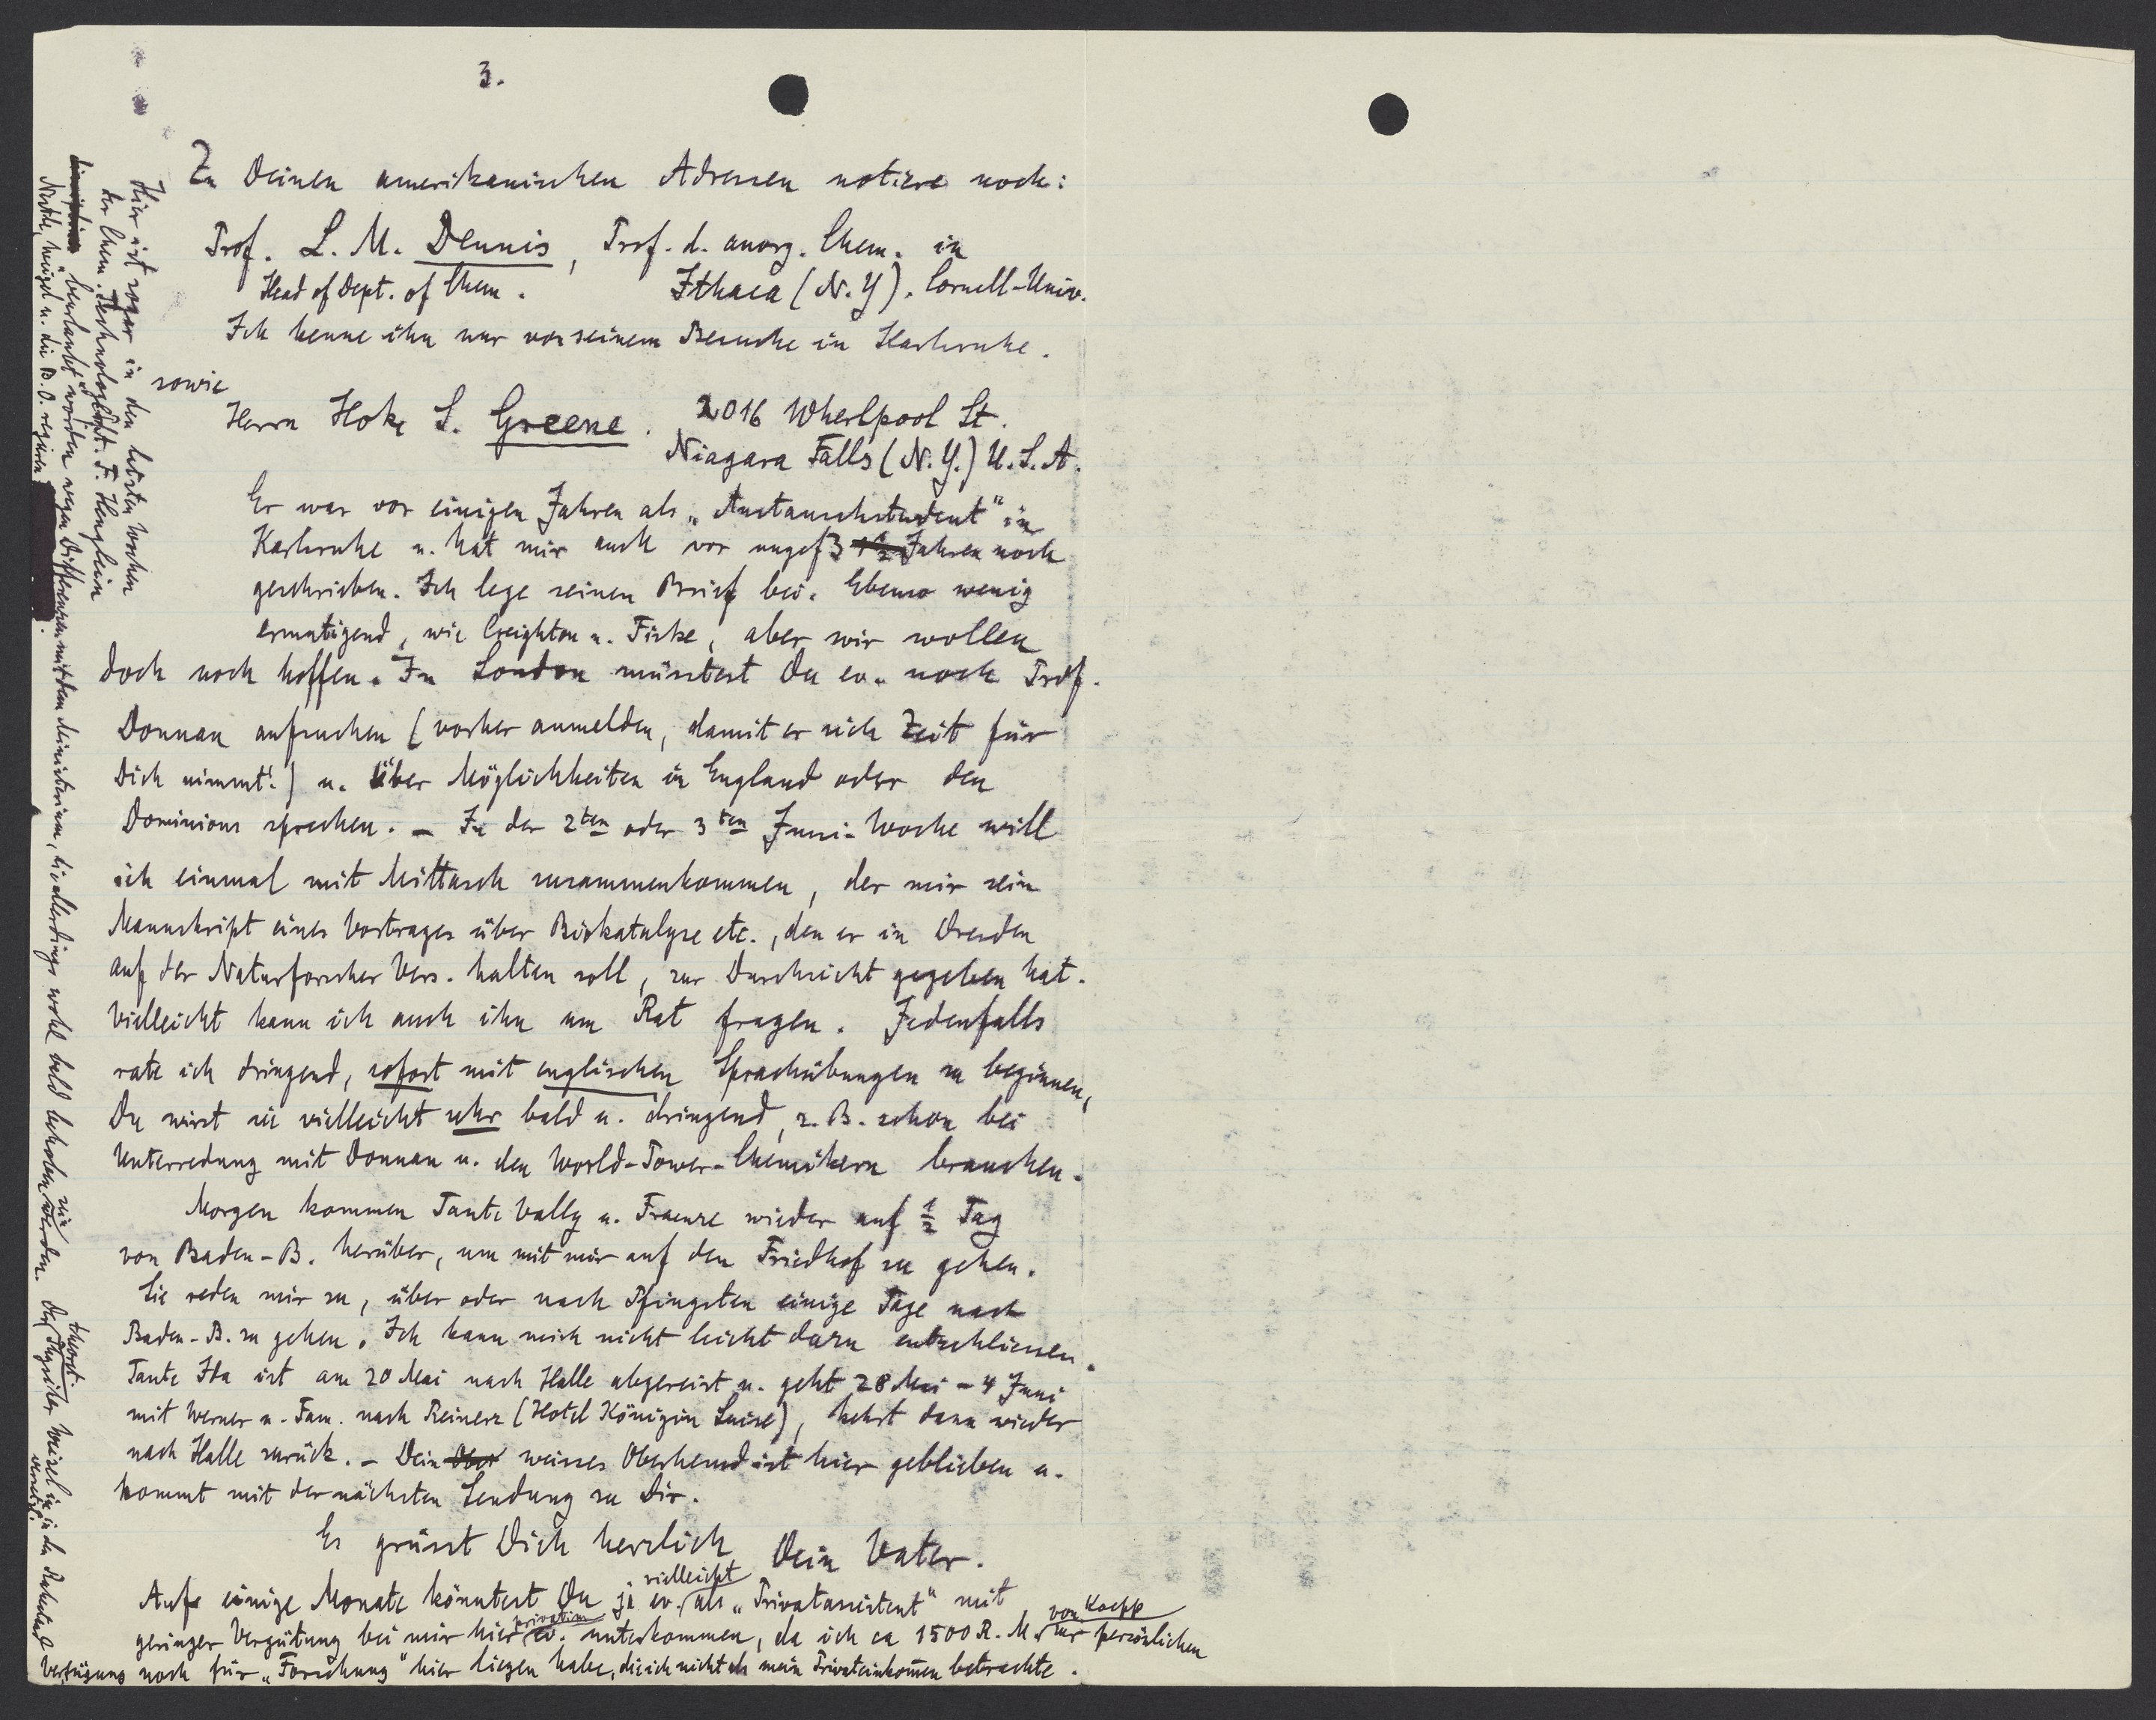 3.
Zu Deinen amerikanischen Adressen notiere noch:
Prof. L. M. Dennis, Prof. d. anorg. Chem. in
Head of Dept. of Chem. Ithaca (N.Y). Cornell-Univ.
Ich kenne ihn nur von seinem Besuche in Karlsruhe.
sowie
Herrn Hoke S. Greene. 2016 Wherlpool St.
Niagara Falls (N.Y.) U.S.A.
Er war vor einigen Jahren als „Austauschstudent" in
Karlsruhe u. hat mir auch vor ungef 3 Jahren noch
geschrieben. Ich lege seinen Brief bei. Ebenso wenig
ermutigend, wie Creighton u. Fiske, aber wir wollen
doch noch hoffen. In London müsstest Du ev. noch Prof.
Donnan aufsuchen (vorher anmelden, damit er sich Zeit für
Dich nimmt!) u. über Möglichkeiten in England oder den
Dominions sprechen. – In der 2ten oder 3ten Juni-Woche will
ich einmal mit Mittasch zusammenkommen, der mir sein
Manuskript eines Vortrages über Biokatalyse etc., den er in Dresden
auf der Naturforscher Vers. halten soll, zur Durchsicht gegeben hat.
Vielleicht kann ich auch ihn um Rat fragen. Jedenfalls
rate ich dringend, sofort mit englischen Sprachübungen zu beginnen,
Du wirst sie vielleicht sehr bald u. dringend, z. B. schon bei
Unterredung mit Donnan u. den World-Power-Chemikern brauchen.
Morgen kommen Tante Vally u. Fraenze wieder auf ½ Tag
von Baden-B. herüber, um mit mir auf den Friedhof zu gehen.
Sie reden mir zu, über oder nach Pfingsten einige Tage nach
Baden-B. zu gehen. Ich kann mich nicht leicht dazu entschliessen.
Tante Ida ist am 20 Mai nach Halle abgereist u. geht 28 Mai – 4 Juni
mit Werner u. Fam. nach Reinerz (Hotel Königin Luise), kehrt dann wieder
nach Halle zurück. – Dein weisses Oberhemd ist hier geblieben u.
kommt mit der nächsten Sendung zu Dir.
Es grüsst Dich herzlich Dein Vater.
Auf einige Monate könntest Du ja ev. vielleicht als „Privatassistent" mit
geringer Vergütung bei mir hier privatim ev. unterkommen, da ich ca 1500 R. M. von Koepp zur persönlichen
Verfügung noch für „Forschung" hier liegen habe, die ich nicht als mein Privateinkommen betrachte.
Hier ist sogar in den letzten Wochen
der Chem. Technologe F. Henglein
„beurlaubt" worden wegen Differenzen mit dem Ministerium, die allerdings wohl bald behoben sein werden. Der theoret. Physiker Weizel ist in den Ruhestand versetzt.
u. die B. O. regieren